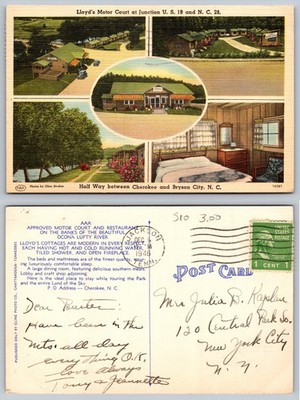 Lloyd's Motor Court at Junction U. S. 19 and N. C. 28,
Photo by Clint Stroker
Half Way between Cherokee and Bryson City, N. C.
AAA
APPROVED MOTOR COURT AND RESTAURANT
ON THE BANKS OF THE BEAUTIFUL
OCONA LUFTY RIVER
LLOYD'S COTTAGES ARE MODERN IN EVERY RESPECT,
EACH HAVING HOT AND COLD RUNNING WATER,
TILED SHOWER, AND OPEN FIREPLACE.
The beds and mattresses are of the finest quality for the luxuriously comfortable sleep.
A large dining room, featuring delicious southern meals.
Lobby and craft shop adjoined.
Here is the ideal place to stay while touring the Park and the entire Land of the Sky.
P. O Address — Cherokee, N. C.
JACKSON
1946
TENN.
S10 3.00
1 CENT 1
POST CARD
Dear Buster:
Have been in the
mts. all day
everything O.K.
love always
Tony & Jeannette
Mrs Julia D. Kaplan
120 Central Park So.
New York City
N. Y.